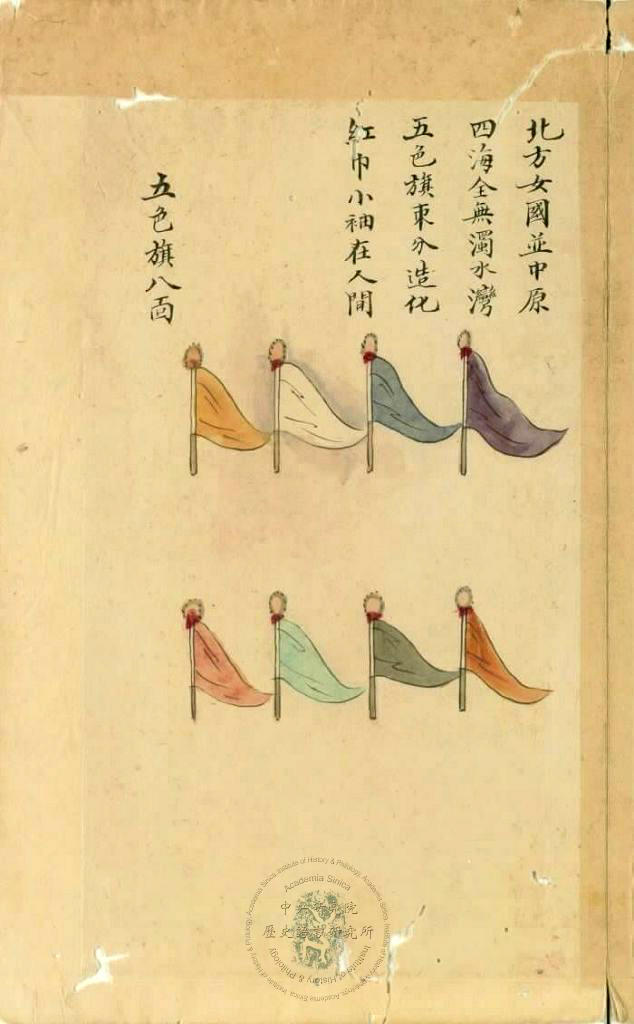 北方女國並中原
四海全無濁水灣
五色旗東分造化
紅巾小袖在人間
五色旗八面
Academia Sinica
中央研究院
歷史語言研究所
Institute of History & Philology